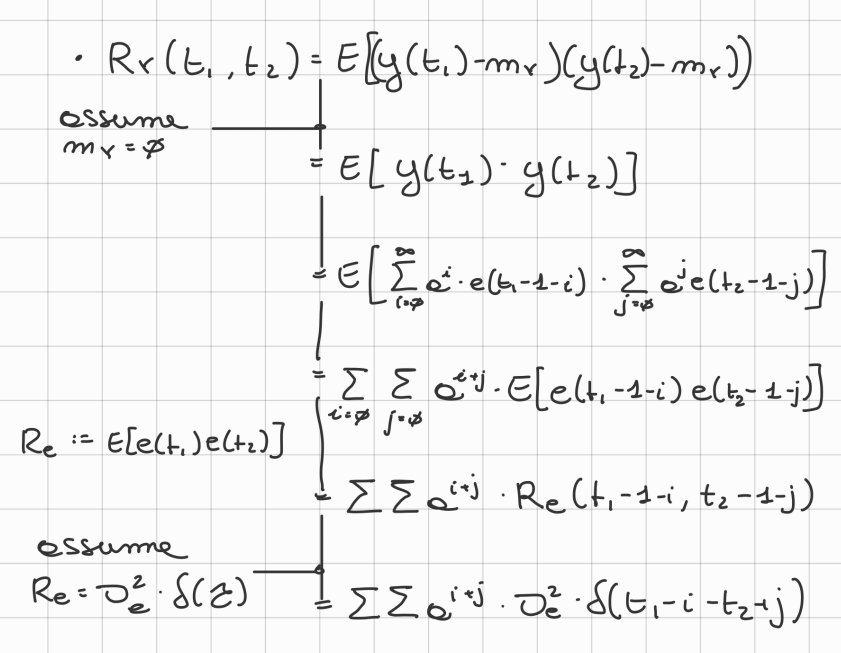 · Rᵧ(t₁, t₂) = E[(y(t₁)-mᵧ)(y(t₂)-mᵧ))
assume
mᵧ = ∅
= E[y(t₁)·y(t₂)]
= E[∑_{i=∅}^{∞} a^i · e(t₁-1-i) · ∑_{j=∅}^{∞} a^j e(t₂-1-j)]
= ∑_{i=∅} ∑_{j=∅} a^{i+j} · E[e(t₁-1-i) e(t₂-1-j)]
Rₑ := E[e(t₁)e(t₂)]
= ∑∑ a^{i+j} · Rₑ(t₁-1-i, t₂-1-j)
assume
Rₑ = σₑ² · δ(τ)
= ∑∑ a^{i+j} · σₑ² · δ(t₁-i-t₂+j)